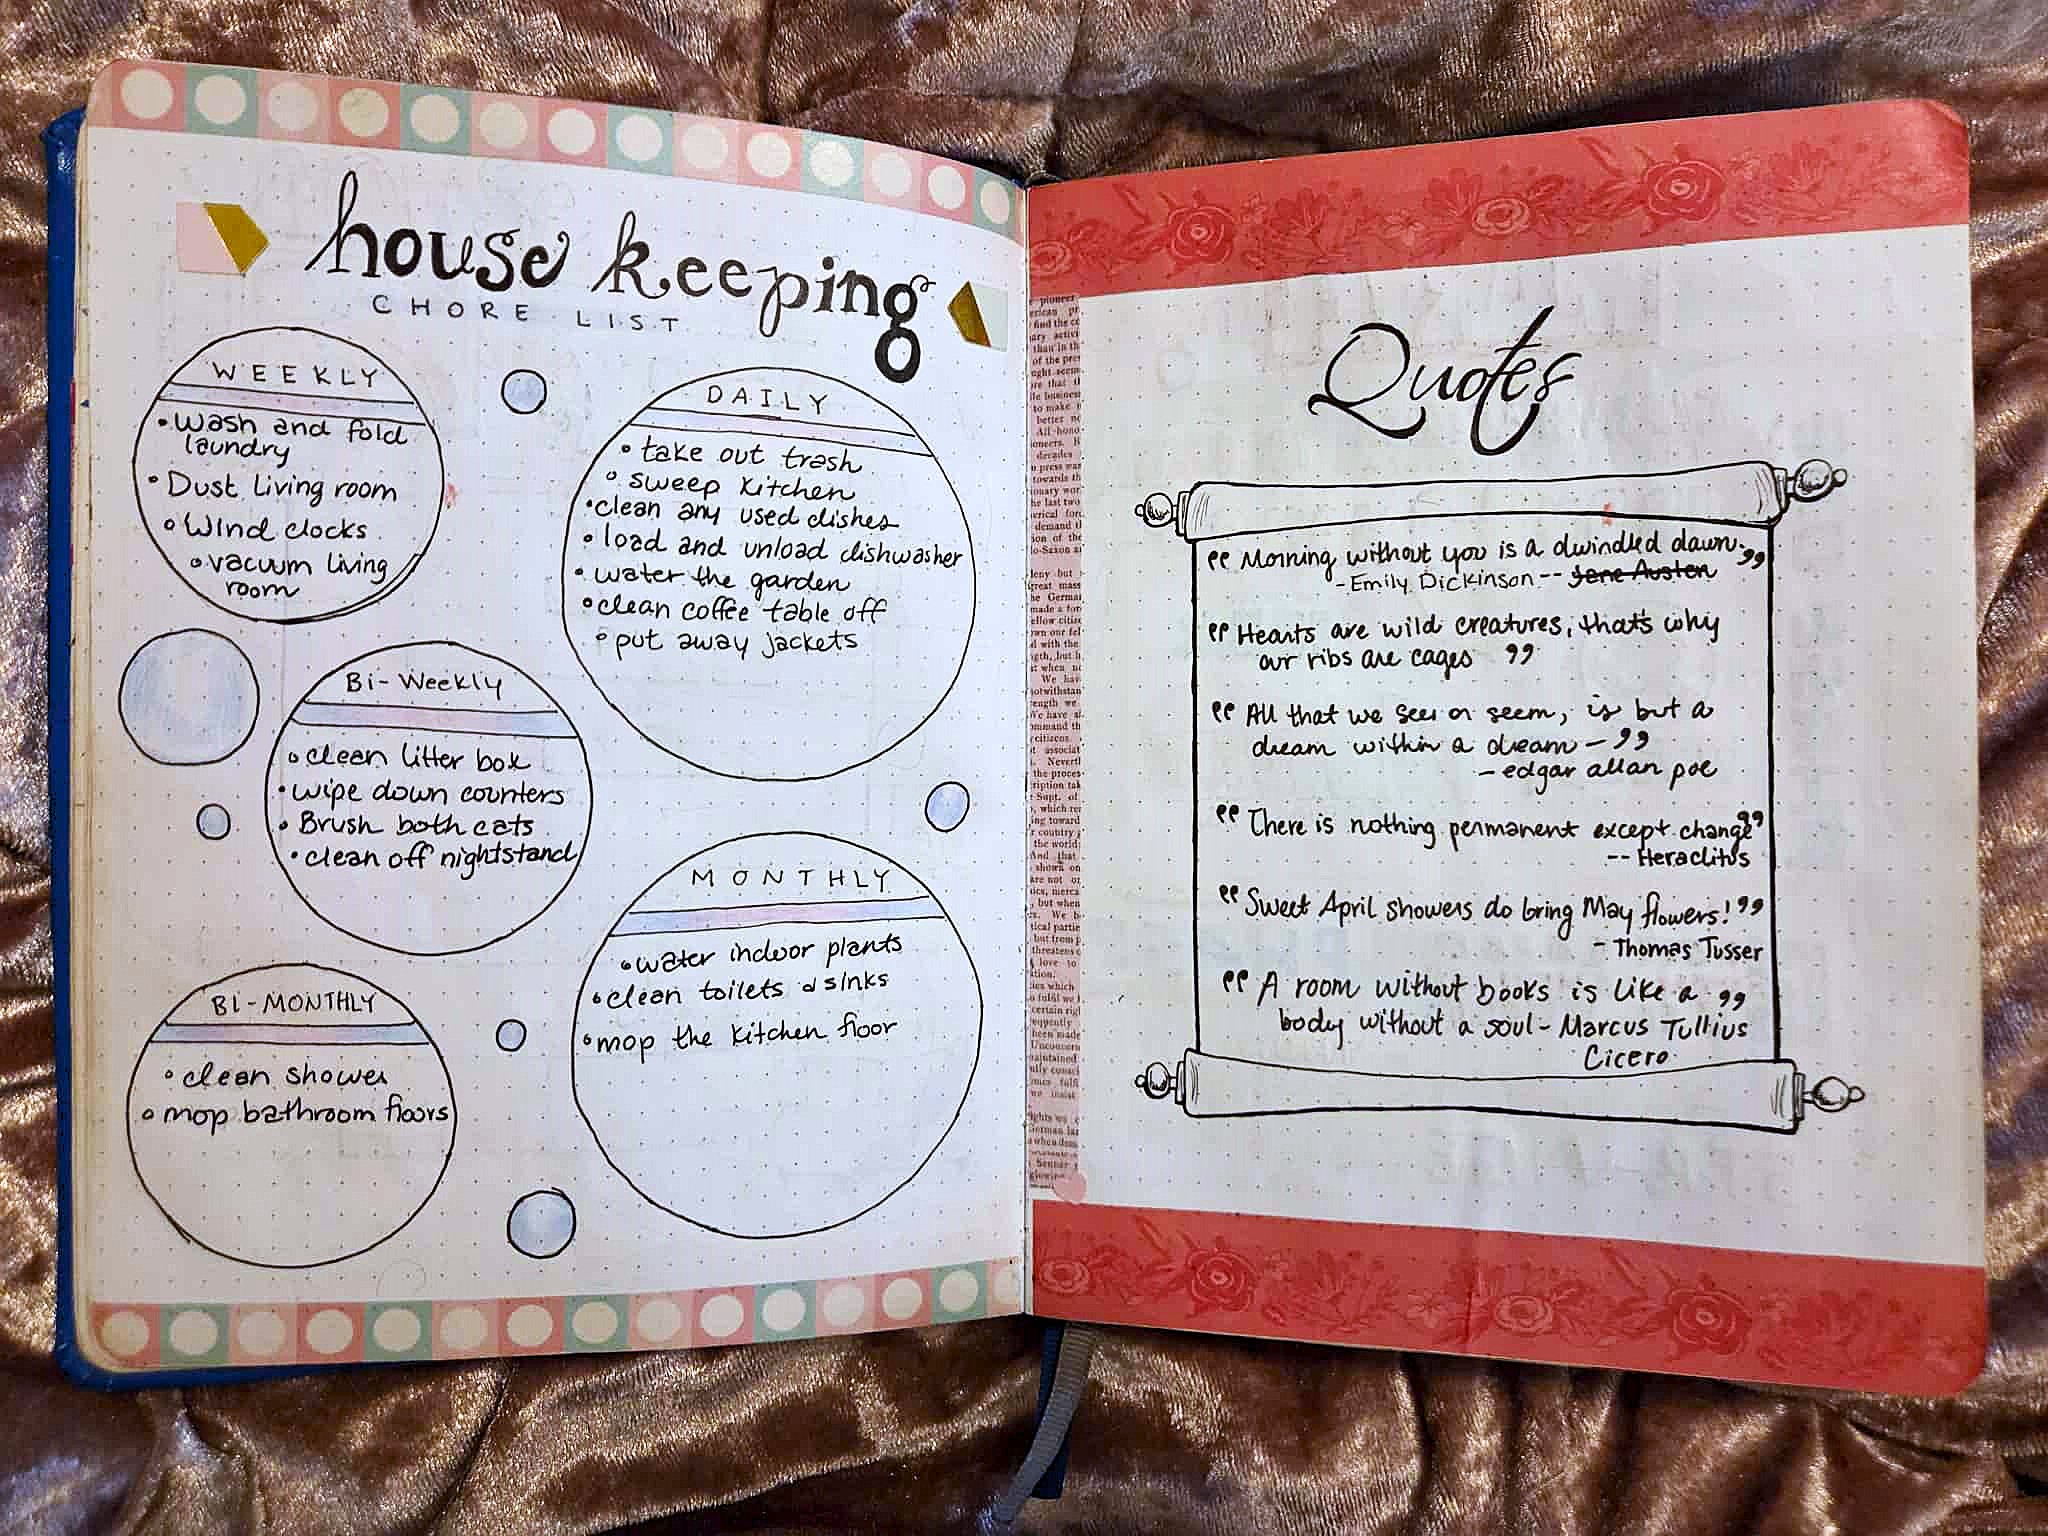 house keeping
CHORE LIST
WEEKLY
• wash and fold
laundry
• Dust living room
• Wind clocks
• vacuum living
room
DAILY
• take out trash
• sweep kitchen
• clean any used dishes
• load and unload dishwasher
• water the garden
• clean coffee table off
• put away jackets
Bi-Weekly
• clean litter box
• wipe down counters
• Brush both cats
• clean off nightstand
MONTHLY
• water indoor plants
• clean toilets & sinks
• mop the kitchen floor
BI-MONTHLY
• clean shower
• mop bathroom floors
Quotes
"Morning without you is a dwindled dawn."
- Emily Dickinson -- Jane Austen
"Hearts are wild creatures, that's why
our ribs are cages"
"All that we see or seem, is but a
dream within a dream - "
- edgar allan poe
"There is nothing permanent except change"
-- Heraclitus
"Sweet April showers do bring May flowers!"
- Thomas Tusser
"A room without books is like a "
body without a soul - Marcus Tullius
Cicero